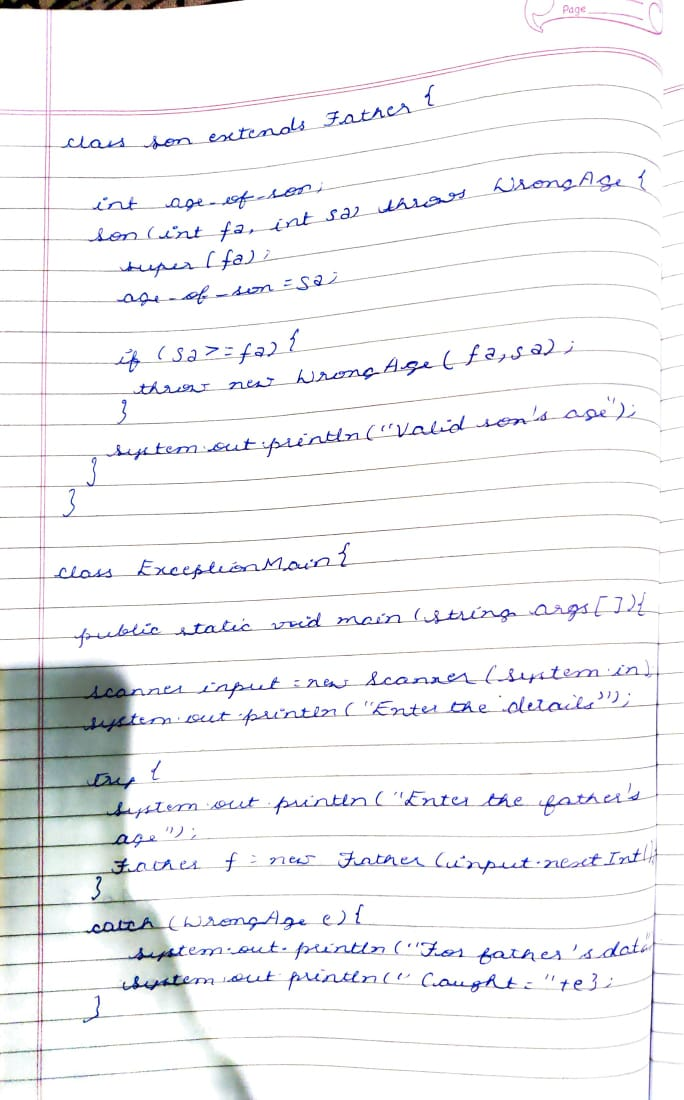 Page
class son extends Father {
int age-of-son;
son (int fa, int sa) throws WrongAge {
super (fa);
age-of-son = sa;
if (sa >= fa) {
throw new WrongAge (fa, sa);
}
system.out.println ("Valid son's age");
}
}
class ExceptionMain {
public static void main (string args[]) {
scanner input = new Scanner (system.in)
system.out.println ("Enter the details");
try {
system.out.println ("Enter the father's
age");
Father f = new Father (input.next Int()
}
catch (WrongAge e) {
system.out.println ("For father's data
system.out println (" Caught = "+e};
}